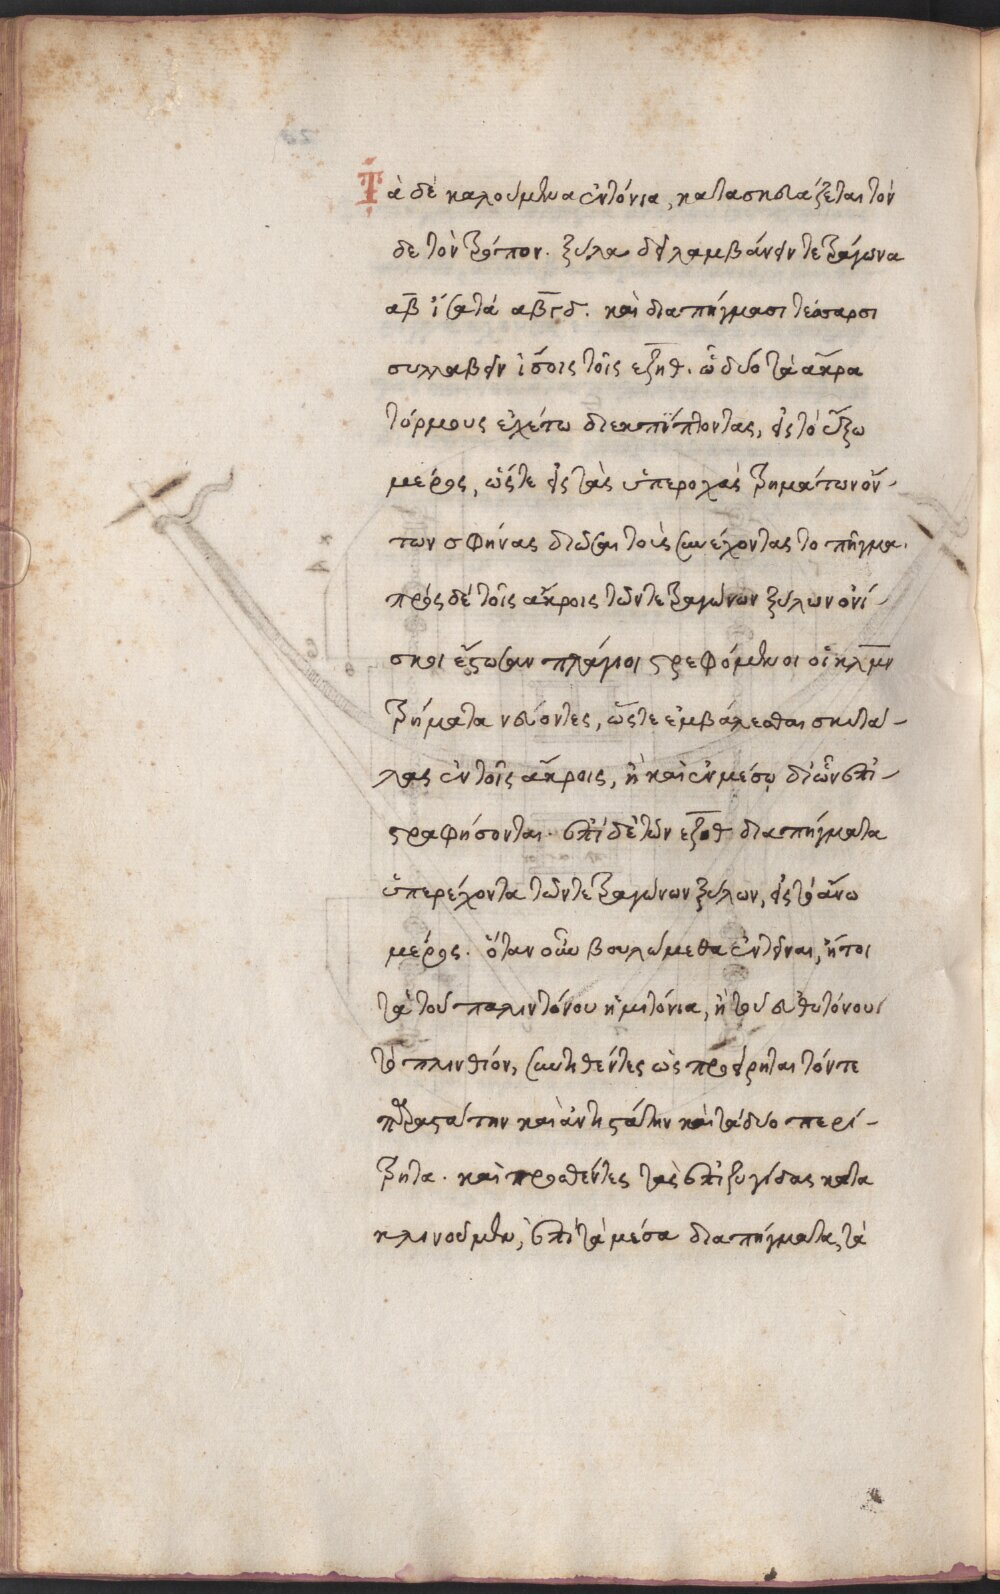 Τὰ δὲ καλούμενα ἐντόνια, κατασκευάζεται τόν
δε τὸν τρόπον. ξύλα δεῖ λαμβάνειν τετράγωνα
αβ ἴσα τὰ αβγδ. καὶ διαπήγμασι τέσσαρσι
συλλαβεῖν ἴσοις τοῖς εζηθ. ὧ δύο τὰ ἄκρα
τόρμους ἐχέτω διεκπίπτοντας, εἰς τὸ ἔξω
μέρος, ὥστε εἰς τὰς ὑπεροχὰς τρημάτων ὄν-
των σφήνας διῶσαι τοὺς συνέχοντας το πῆγμα.
πρὸς δὲ τοῖς ἄκροις τῶν τετραγώνων ξύλων ὀνί-
σκοι ἔξωσαν πλάγιοι στρεφόμενοι οἱ κλμν
τρήματα νεύοντες, ὥστε ἐμβάλεσθαι σκυτά-
λας ἐν τοῖς ἄκροις, ἢ καὶ ἐν μέσῳ δι' ὧν ἐπι-
στραφήσονται. ἐπὶ δὲ τῶν εζηθ διαπήγματα
ὑπερέχοντα τῶν τετραγώνων ξύλων, εἰς τὸ ἄνω
μέρος. ὅταν οὖν βουλώμεθα ἐντεῖναι, ἤτοι
τὰ τοῦ παλιντόνου ἡμιτόνια, ἢ τοῦ εὐθυτόνου
τὸ πλινθίον, συντιθέντες ὡς προείρηται τόν τε
παραστάτην καὶ ἀντιστάτην καὶ τὰ δύο περί-
τρητα. καὶ προσθέντες τὰς ἐπιζυγίδας κατα
κλινοῦμεν, ἐπὶ τὰ μέσα διαπήγματα, τὰ